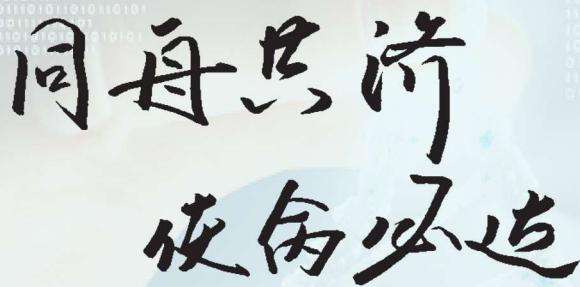 同舟共济
使命必达